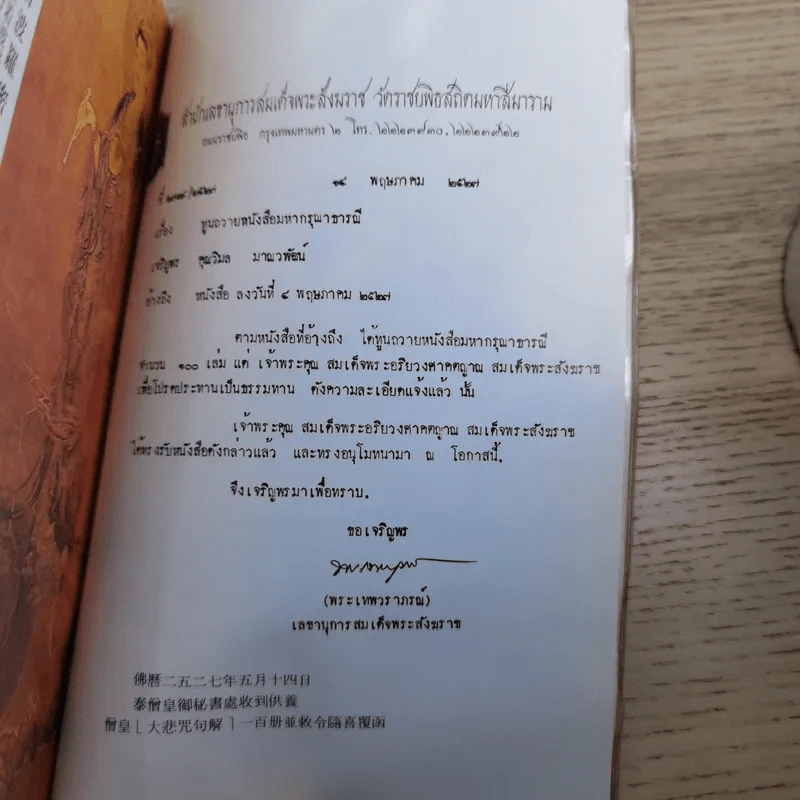 สำนักเลขานุการสมเด็จพระสังฆราช วัดราชบพิธสถิตมหาสีมาราม
ถนนราชบพิธ กรุงเทพมหานคร ๒ โทร. ๒๒๒๓๙๓๐, ๒๒๒๓๙๒๒
ที่ /๒๕๒๗
๑๔ พฤษภาคม ๒๕๒๗
เรื่อง ทูนถวายหนังสือมหากรุณาธารณี
เจริญพร คุณวิมล มาณวพัฒน์
อ้างถึง หนังสือ ลงวันที่ ๔ พฤษภาคม ๒๕๒๗
ตามหนังสือที่อ้างถึง ได้ทูนถวายหนังสือมหากรุณาธารณี
จำนวน ๑๐๐ เล่ม แด่ เจ้าพระคุณ สมเด็จพระอริยวงศาคตญาณ สมเด็จพระสังฆราช
เพื่อโปรดประทานเป็นธรรมทาน ดังความละเอียดแจ้งแล้ว นั้น
เจ้าพระคุณ สมเด็จพระอริยวงศาคตญาณ สมเด็จพระสังฆราช
ได้ทรงรับหนังสือดังกล่าวแล้ว และทรงอนุโมทนามา ณ โอกาสนี้.
จึงเจริญพรมาเพื่อทราบ.
ขอเจริญพร
(พระเทพวราภรณ์)
เลขานุการสมเด็จพระสังฆราช
佛曆二五二七年五月十四日
泰僧皇御秘書處收到供養
僧皇［大悲咒句解］一百册並敕令隨喜覆函